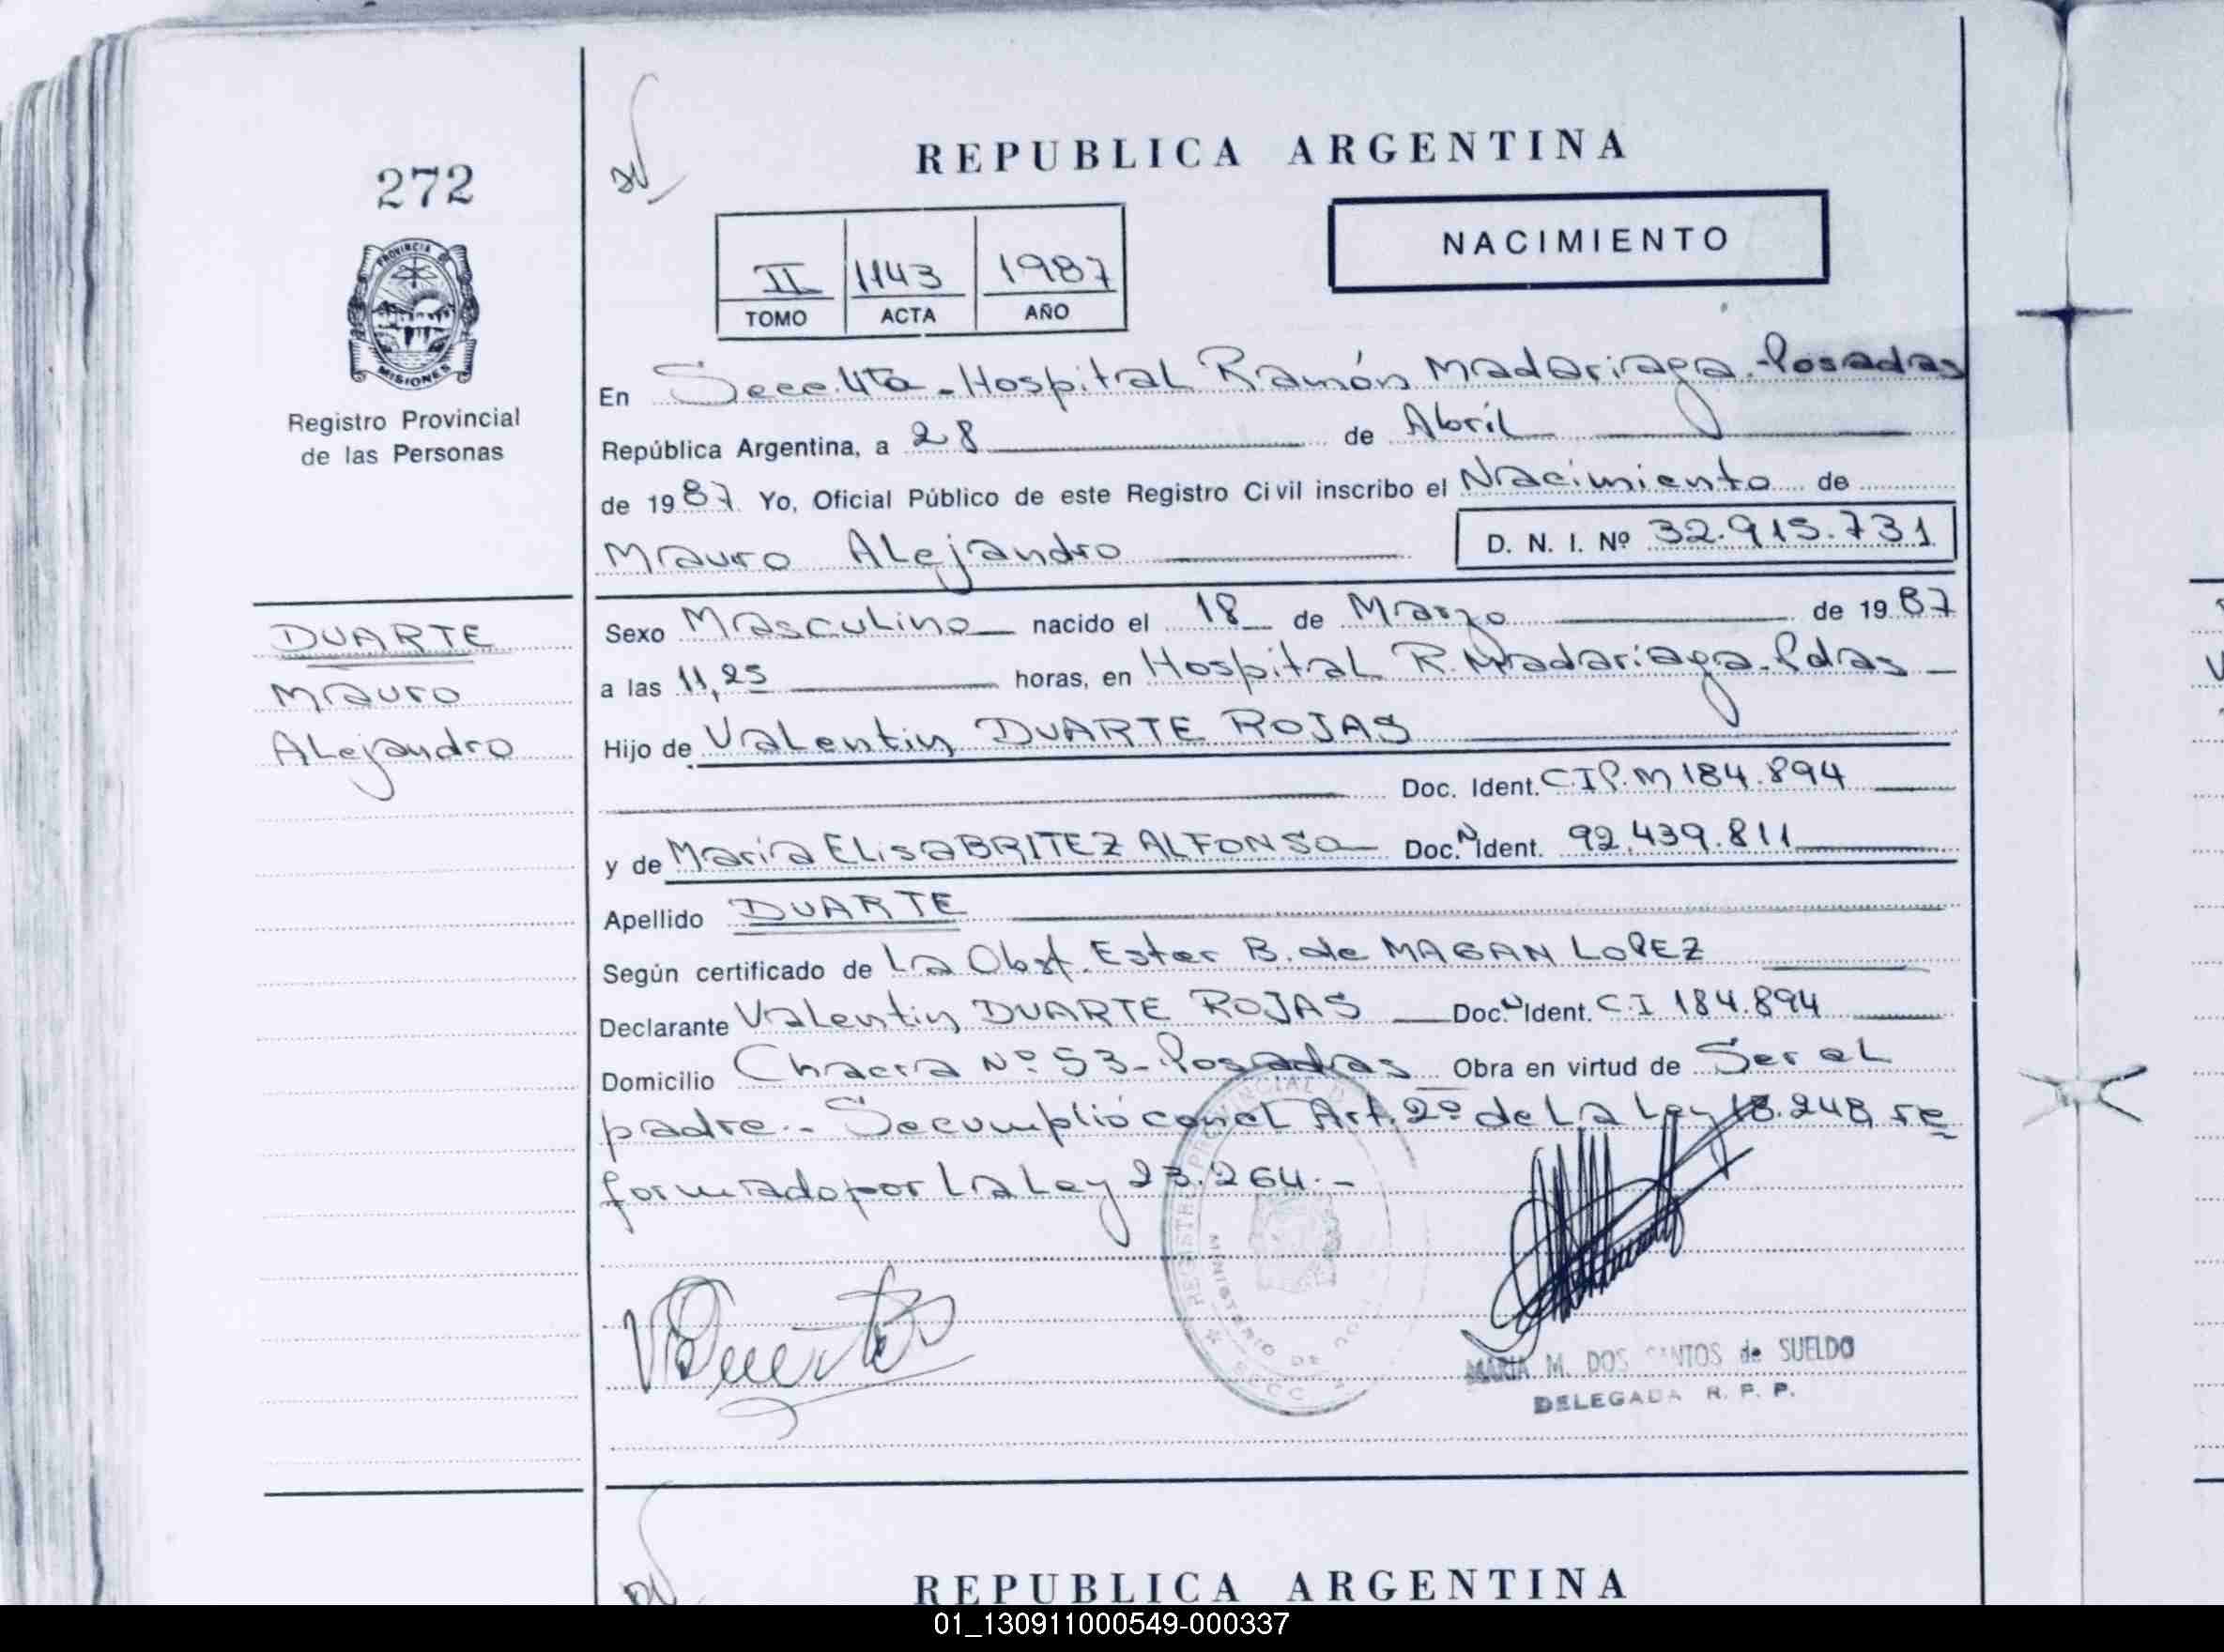 272
PROVINCIA DE
MISIONES
Registro Provincial
de las Personas
DUARTE
Mauro
Alejandro
REPUBLICA ARGENTINA
NACIMIENTO
II 1143 1987
TOMO ACTA AÑO
En Secc. 4ta - Hospital Ramón Madariaga - Posadas
República Argentina, a 28 de Abril
de 1987 Yo, Oficial Público de este Registro Civil inscribo el Nacimiento de
Mauro Alejandro D. N. I. Nº 32.915.731
Sexo Masculino nacido el 18 de Marzo de 1987
a las 11,25 horas, en Hospital R. Madariaga - Pdas -
Hijo de Valentin DUARTE ROJAS
Doc. Ident. C.I.P.M 184.894
y de María Elisa BRITEZ ALFONSO Doc. N Ident. 92.439.811
Apellido DUARTE
Según certificado de La Obst. Ester B. de MAGAN LOPEZ
Declarante Valentin DUARTE ROJAS Doc. N Ident. C.I 184.894
Domicilio Chacra Nº 53 - Posadas Obra en virtud de Ser el
padre.- Se cumplió con el Art. 2º de La Ley 18.248, re
formado por La Ley 23.264.-
REGISTRO PROVINCIAL
MINISTERIO DE
MARIA M. DOS SANTOS de SUELDO
DELEGADA R. P. P.
REPUBLICA ARGENTINA
01_130911000549-000337